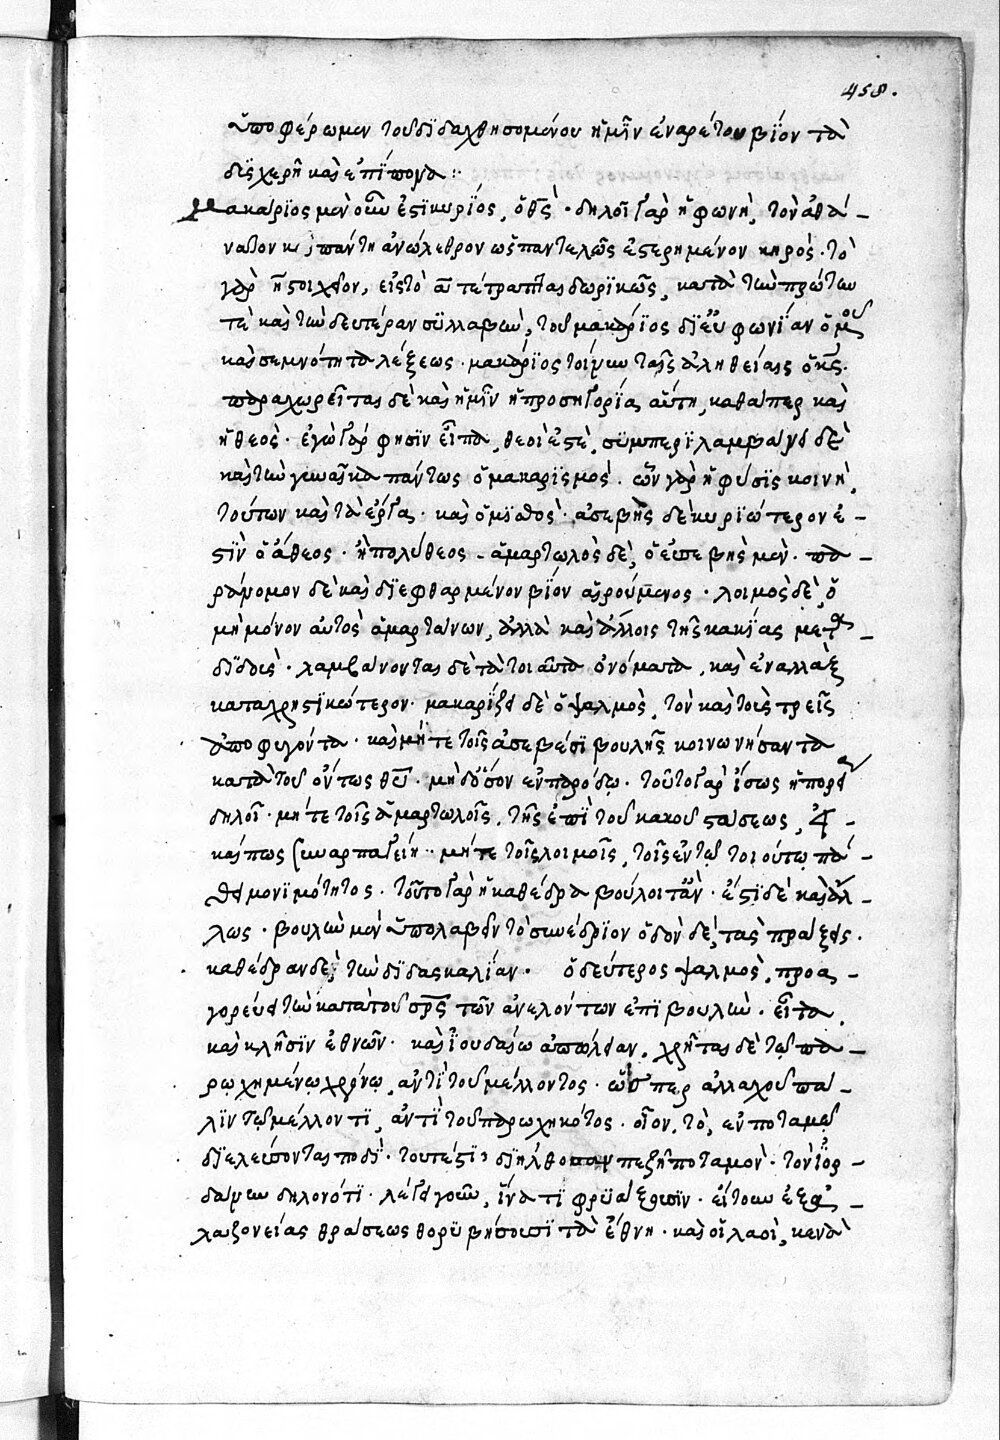 458.
ὑποφέρωμεν τοῦ διδαχθησομένου ἡμῖν ἐναρέτου βίον τὰ
δυσχερῆ καὶ ἐπίπονα :
μακάριος μὲν οὖν ἐστι κυρίως, ὁ θς· δηλοῖ γὰρ ἡ φωνὴ, τὸν ἀθά-
νατον κ πάντῃ ἀνώλεθρον ὡς παντελῶς ἐστερημένον κηρός· τὸ
γὰρ η στοιχεῖον, εἰς τὸ α τέτραπται δωρικῶς, κατὰ τὴν πρώτην
τε καὶ τὴν δευτέραν συλλαβὴν, τοῦ μακάριος δι' εὐφωνίαν ὁμοῦ
καὶ σεμνότητα λέξεως· μακάριος τοίνυν ταῖς ἀληθείαις ὁ κς.
παραχωρεῖται δὲ καὶ ἡμῖν ἡ προσηγορία αὕτη, καθάπερ καὶ
ἡ θεός· ἐγὼ γάρ φησιν εἶπα, θεοὶ ἐστὲ, συμπεριλαμβάνει δὲ
καὶ τὴν γυναῖκα πάντως ὁ μακαρισμός· ὧν γὰρ ἡ φύσις κοινὴ,
τούτων καὶ τὰ ἔργα· καὶ ὁ μισθός· ἀσεβὴς δὲ κυριώτερον ἐ-
στὶν ὁ ἄθεος· ἢ πολύθεος - ἁμαρτωλὸς δὲ, ὁ εὐσεβὴς μὲν· πα-
ράνομον δὲ καὶ διεφθαρμένον βίον αἱρούμενος· λοιμὸς δὲ, ὁ
μὴ μόνον αὐτὸς ἁμαρτάνων, ἀλλὰ καὶ ἄλλοις τῆς κακίας μετα-
διδούς· λαμβάνονται δὲ τὰ τοιαῦτα ὀνόματα, καὶ ἐναλλὰξ
καταχρηστικώτερον· μακαρίζει δὲ ὁ ψαλμὸς, τὸν καὶ τοὺς τρεῖς
ἀποφυγόντα· καὶ μήτε τοῖς ἀσεβέσι βουλῆς κοινωνήσαντα
κατὰ τοῦ ὄντως θυ· μηδ' ὅσον ἐν παρόδῳ· τοῦτο γὰρ ἴσως ἡ πορεία
δηλοῖ· μήτε τοῖς ἁμαρτωλοῖς, τῆς ἐπὶ τοῦ κακοῦ στάσεως,
κάπως συναρπαγείη· μήτε τοῖς λοιμοῖς, τοῖς ἐν τῷ τοιούτῳ πά-
θει μονιμότητος· τοῦτο γὰρ ἡ καθέδρα βούλοιτ' ἂν· ἔστι δὲ καὶ ἄλ-
λως· βουλὴν μὲν ὑπολαβεῖν τὸ συνέδριον ὁδὸν δὲ, τὰς πράξεις·
καθέδραν δὲ, τὴν διδασκαλίαν· ὁ δεύτερος ψαλμὸς, προα-
γορεύει τὴν κατὰ τοῦ σρς τῶν ἀνελόντων ἐπιβουλὴν· εἶτα,
καὶ κλῆσιν ἐθνῶν· καὶ ἰουδαίων ἀπώλειαν. χρῆται δὲ τῷ πα-
ρῳχημένῳ χρόνῳ, ἀντὶ τοῦ μέλλοντος· ὥσπερ ἀλλαχοῦ πά-
λιν τῷ μέλλοντι, ἀντὶ τοῦ παρῳχηκότος· οἷον, τὸ, ἐν ποταμῷ
διελεύσονται ποδί· τουτέστι, διῆλθον πεζῇ ποταμὸν· τὸν ἰορ-
δάνην δηλονότι· λέγει γοῦν, ἵνα τί φρύαξαν· εἴτουν ἐξ
ἀλαζονείας θράσεως θορυβήσουσι τὰ ἔθνη· καὶ οἱ λαοὶ, κενὰ